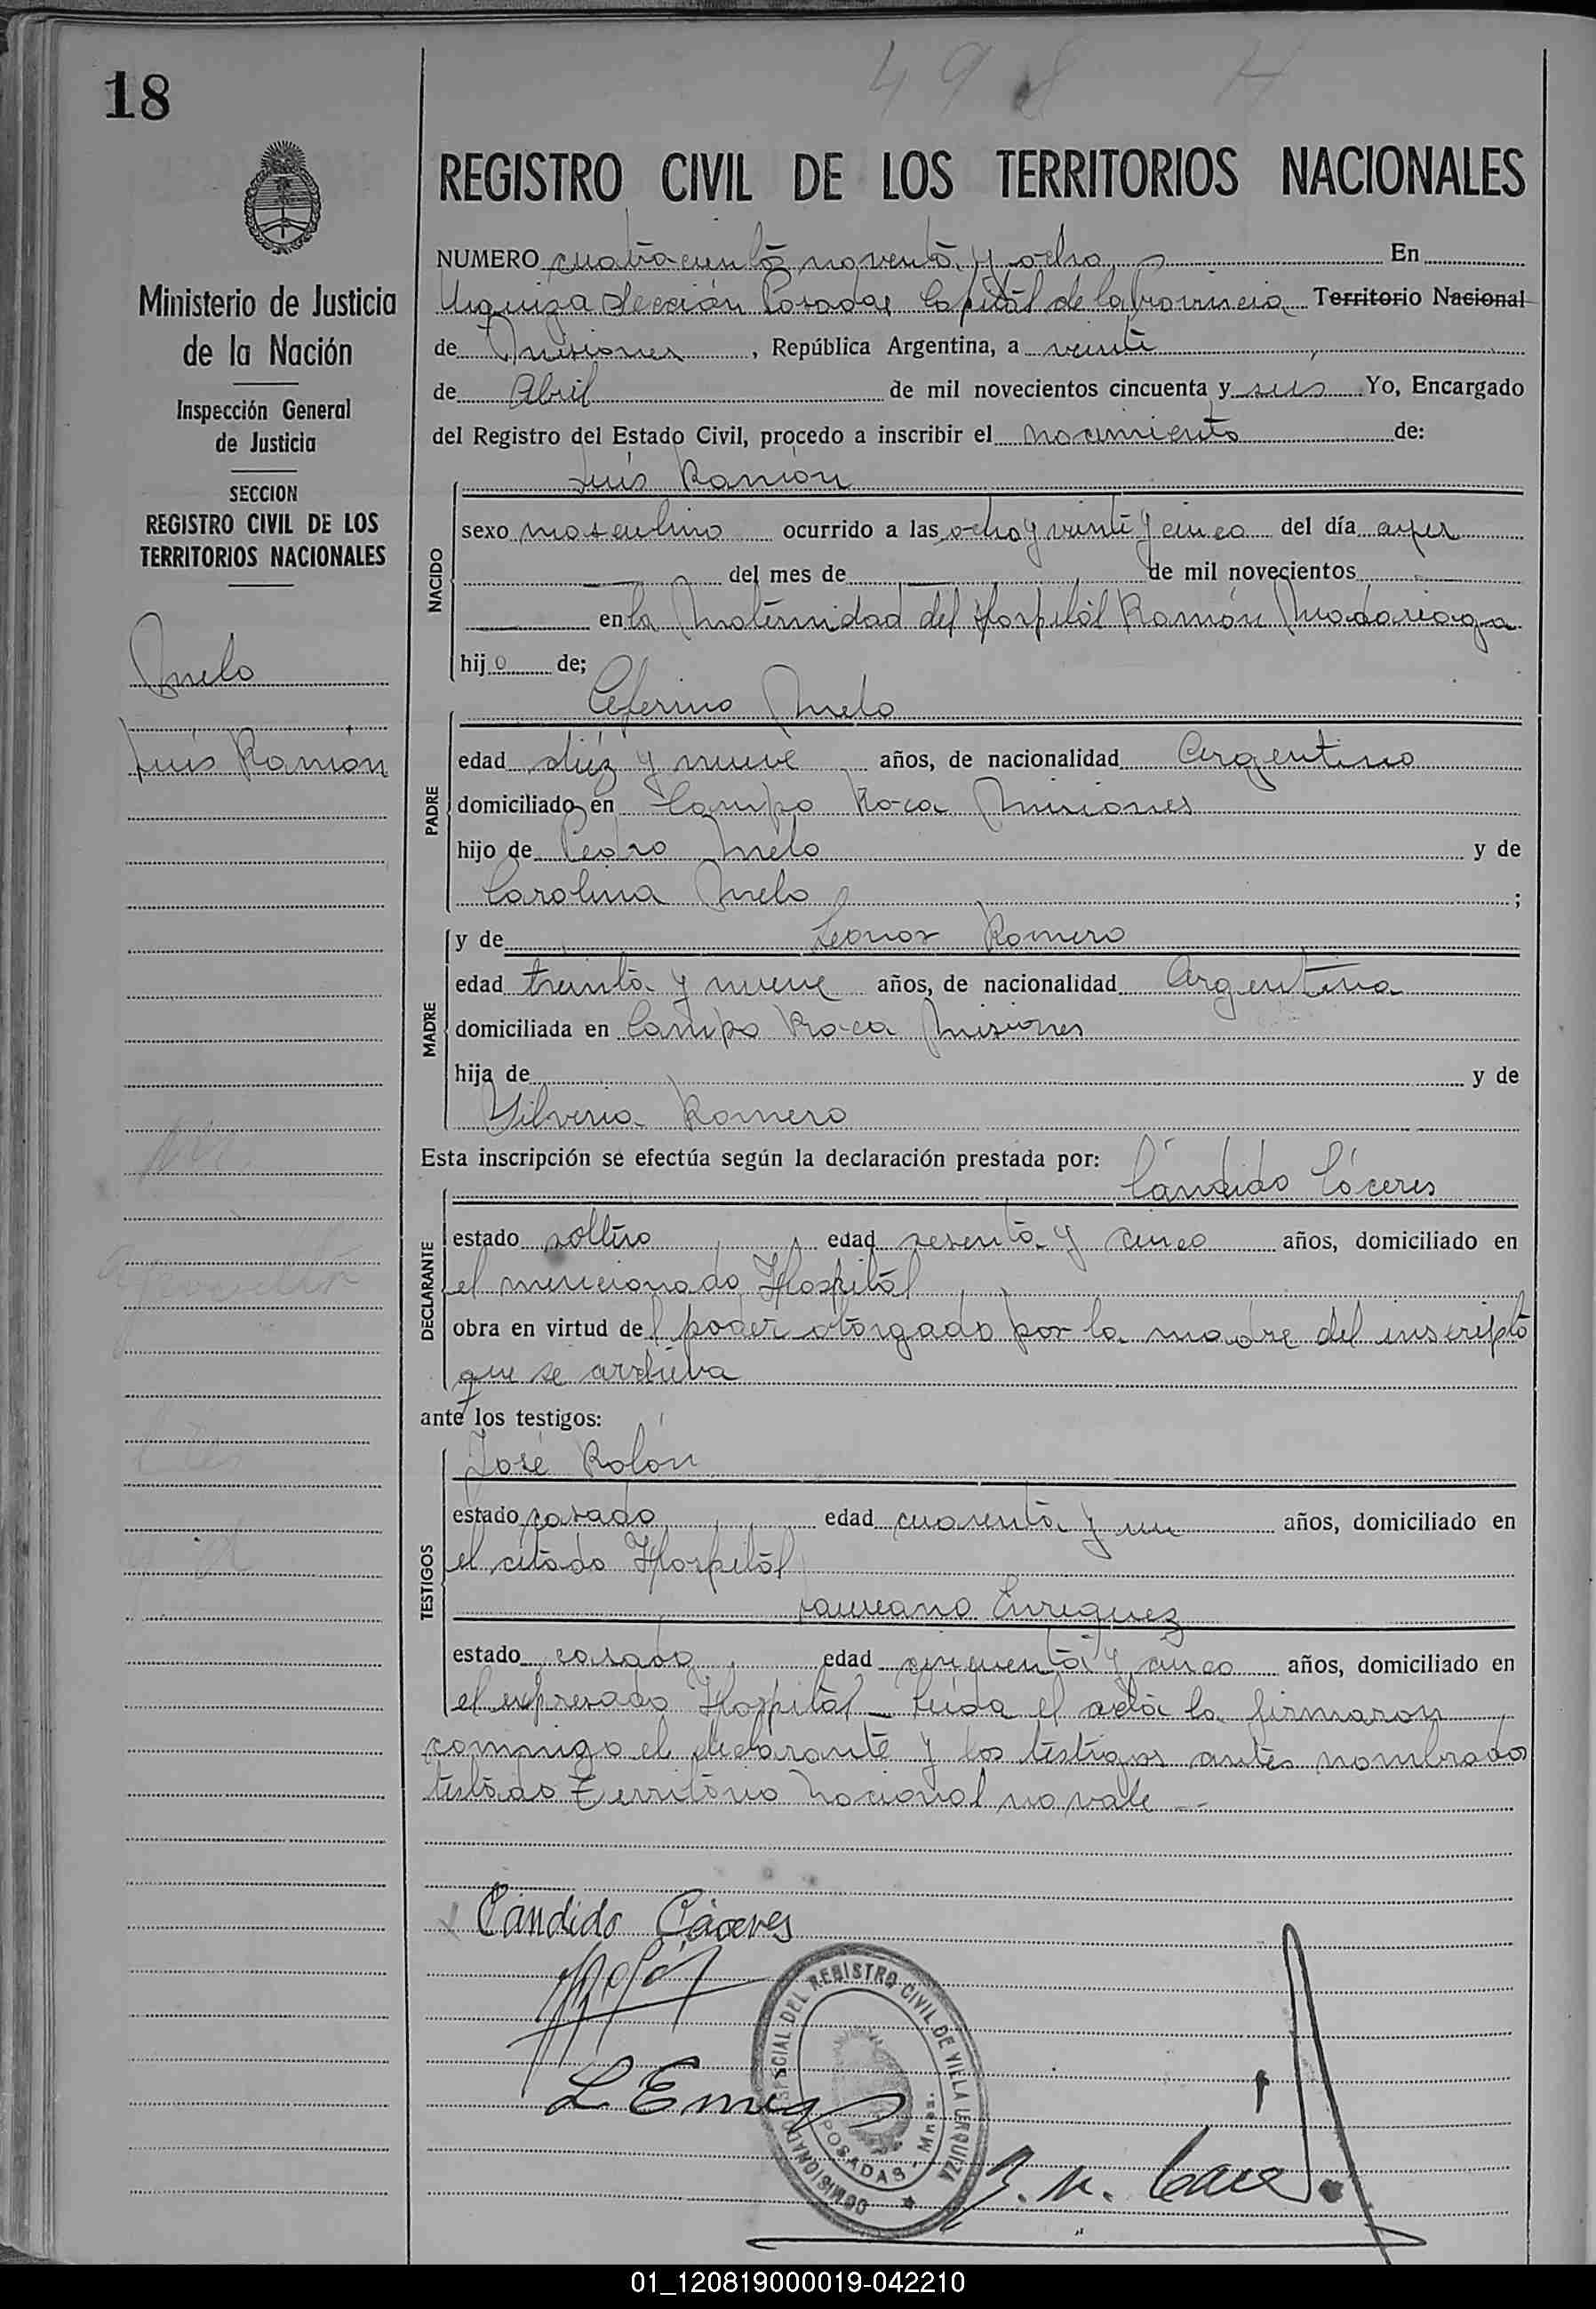 18
498
REGISTRO CIVIL DE LOS TERRITORIOS NACIONALES
Ministerio de Justicia
de la Nación
Inspección General
de Justicia
SECCION
REGISTRO CIVIL DE LOS
TERRITORIOS NACIONALES
Melo
Luis Ramón
NUMERO cuatrocientos noventa y ocho En
Urquiza Sección Posadas Capital de la Provincia Territorio Nacional
de Misiones, República Argentina, a veinte
de Abril de mil novecientos cincuenta y seis Yo, Encargado
del Registro del Estado Civil, procedo a inscribir el nacimiento de:
Luis Ramón
NACIDO
sexo masculino ocurrido a las ocho y veinti y cinco del día ayer
del mes de de mil novecientos
en la Maternidad del Hospital Ramón Madariaga
hijo de;
Ceferino Melo
PADRE
edad diéz y nueve años, de nacionalidad Argentino
domiciliado en Campo Roca Misiones
hijo de Pedro Melo y de
Carolina Melo ;
MADRE
y de Leonor Romero
edad treinta y nueve años, de nacionalidad Argentina
domiciliada en Campo Roca Misiones
hija de y de
Silveria Romero
Esta inscripción se efectúa según la declaración prestada por:
Cándido Cáceres
DECLARANTE
estado soltero edad sesenta y cinco años, domiciliado en
el mencionado Hospital
obra en virtud del poder otorgado por la madre del inscripto
que se archiva
ante los testigos:
José Rolón
TESTIGOS
estado casado edad cuarenta y un años, domiciliado en
el citado Hospital
Laureano Enriquez
estado casado edad cincuenta y cinco años, domiciliado en
el expresado Hospital - Leída el acta la firmaron
conmigo el declarante y los testigos antes nombrados
testado Territorio Nacional no vale --
Cándido Cáceres
COMISIONADO ESPECIAL DEL REGISTRO CIVIL DE VILLA URQUIZA
POSADAS - Mnes.
01_120819000019-042210